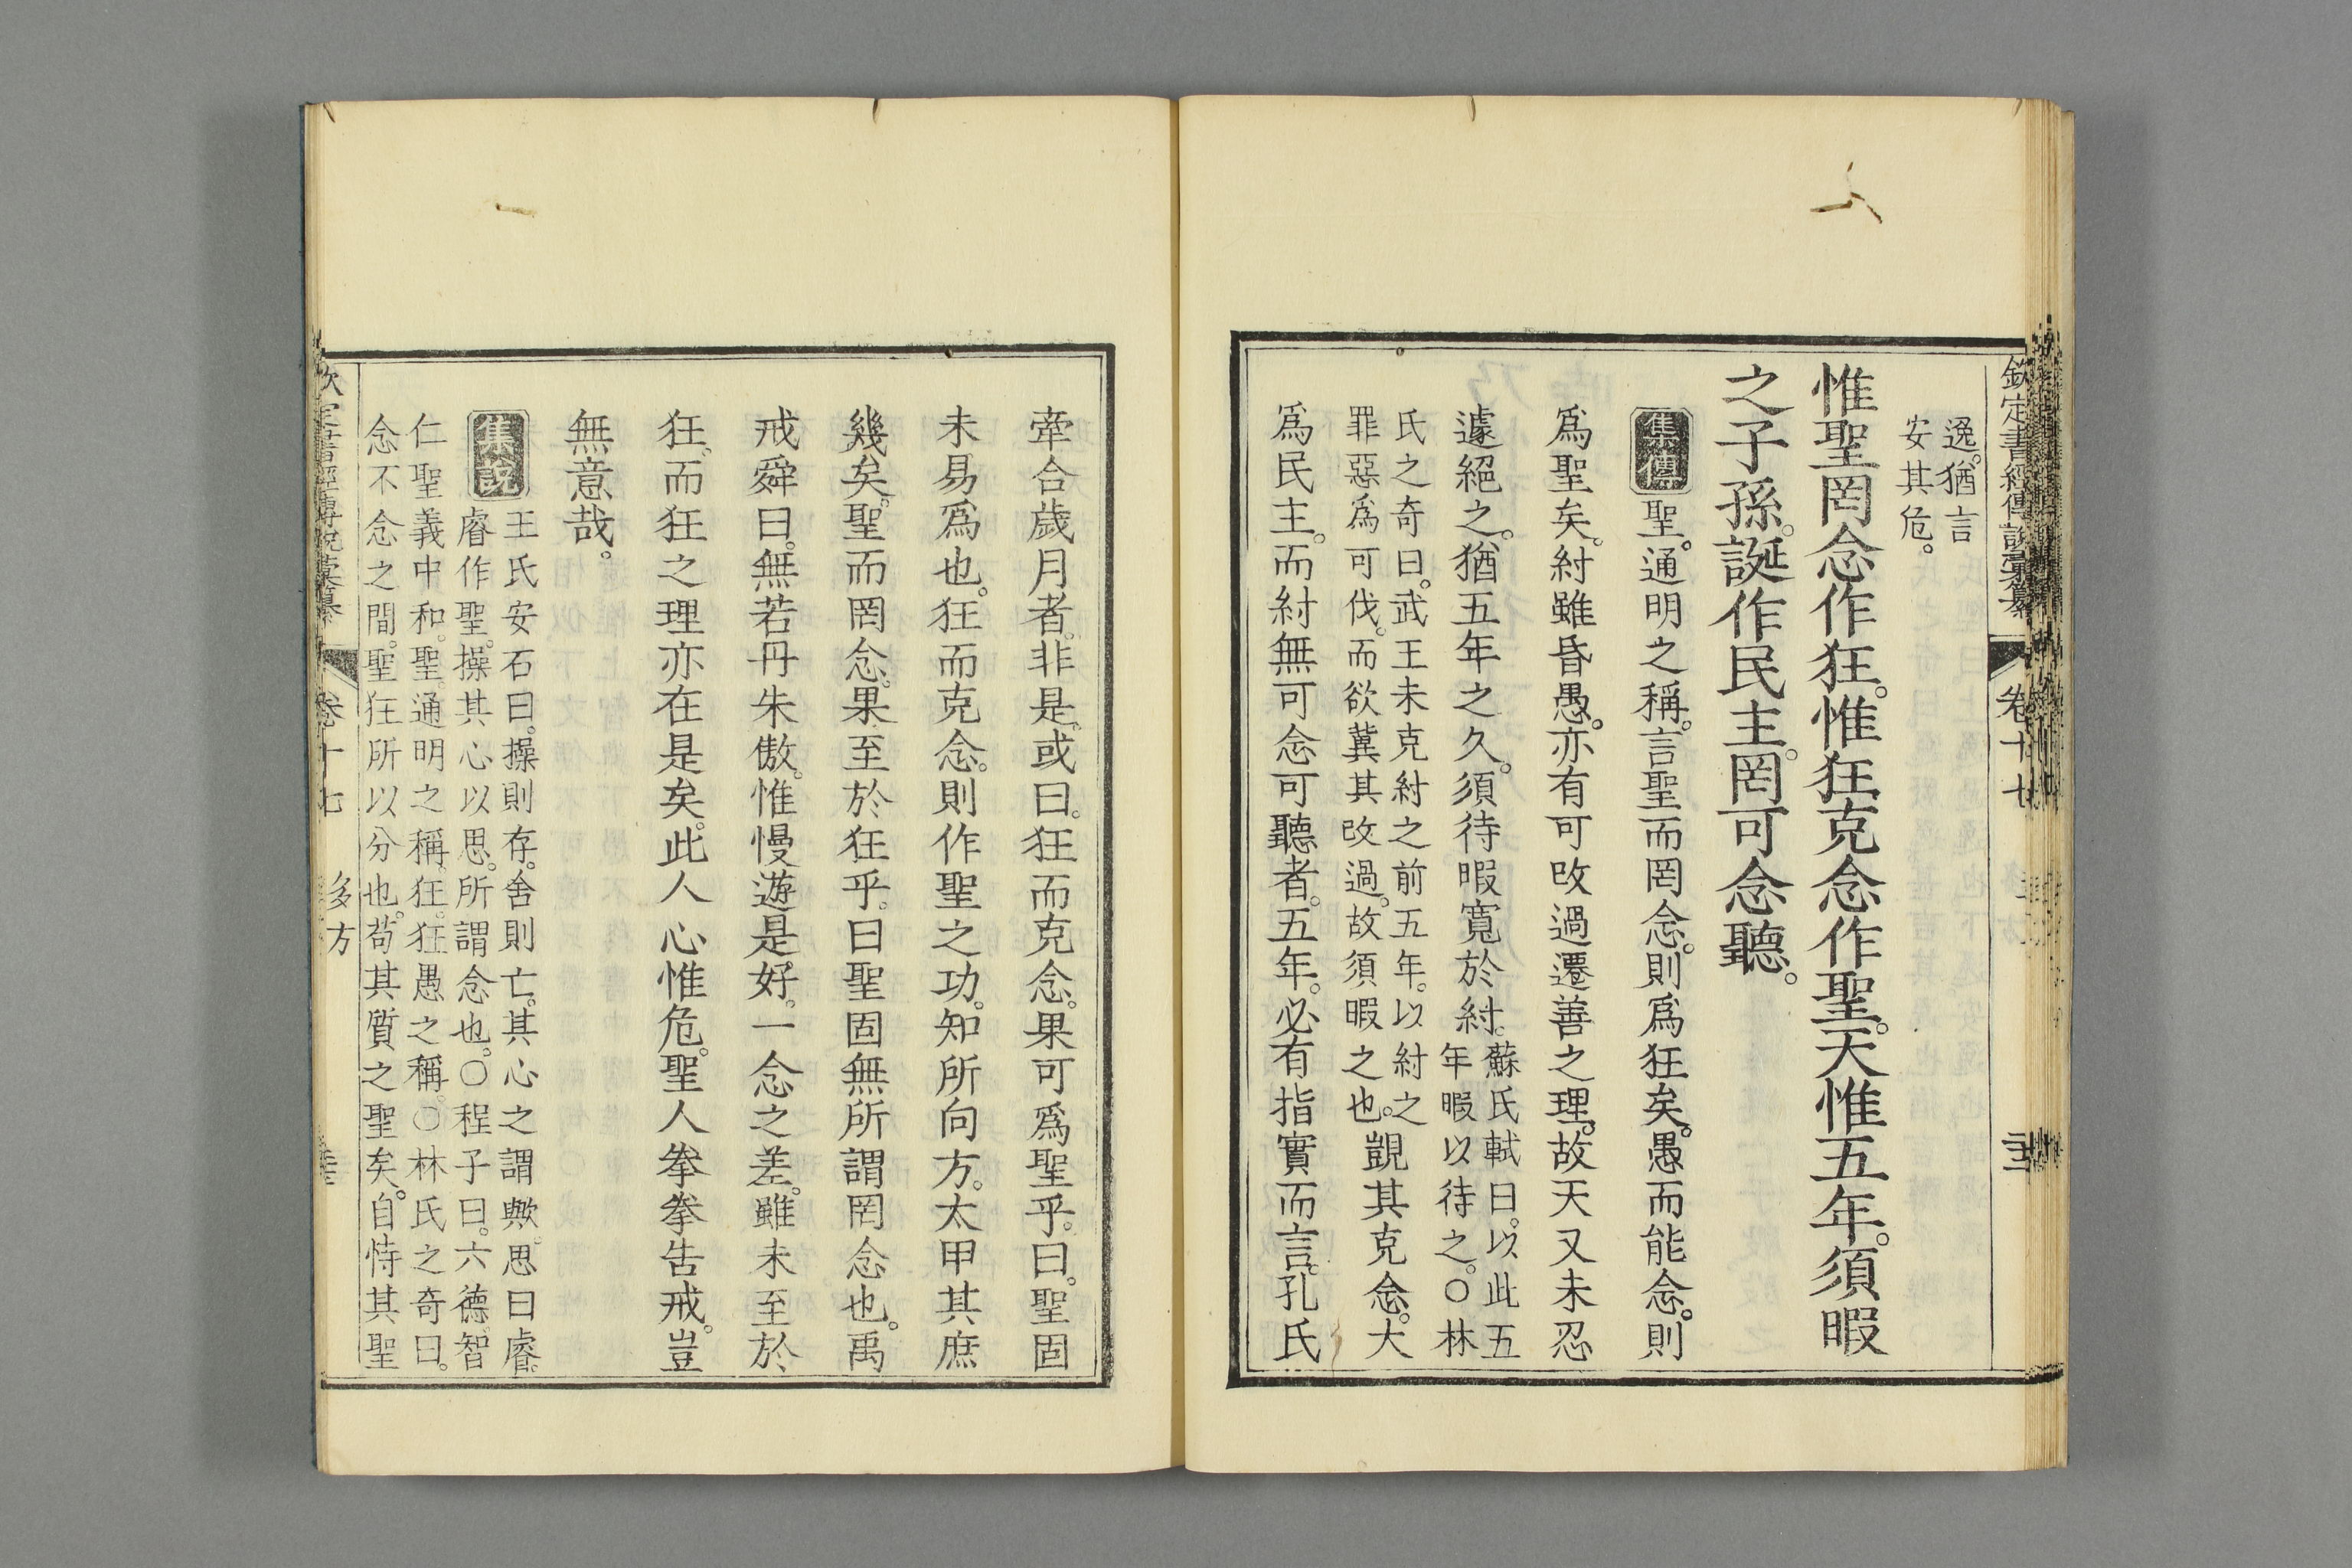 逸。猶言
安其危。
惟聖罔念作狂。惟狂克念作聖。天惟五年。須暇
之子孫。誕作民主。罔可念聽。
集傳 聖。通明之稱。言聖而罔念。則爲狂矣。愚而能念。則
爲聖矣。紂雖昏愚。亦有可改過遷善之理。故天又未忍
遽絕之。猶五年之久。須待暇寬於紂。
蘇氏軾曰。以此五
年暇以待之。○林
氏之奇曰。武王未克紂之前五年。以紂之
罪惡爲可伐。而欲冀其改過。故須暇之也。
覬其克念。大
爲民主。而紂無可念可聽者。五年。必有指實而言。孔氏
牽合歲月者。非是。或曰。狂而克念。果可爲聖乎。曰。聖固
未易爲也。狂而克念。則作聖之功。知所向方。太甲其庶
幾矣。聖而罔念。果至於狂乎。曰聖固無所謂罔念也。禹
戒舜曰。無若丹朱傲。惟慢遊是好。一念之差。雖未至於
狂。而狂之理亦在是矣。此人心惟危。聖人拳拳告戒。豈
無意哉。
集說 王氏安石曰。操則存。舍則亡。其心之謂歟。思曰睿
睿作聖。操其心以思。所謂念也。○程子曰。六德。智
仁聖義中和。聖。通明之稱。狂。狂愚之稱。○林氏之奇曰。
念不念之間。聖狂所以分也。苟其質之聖矣。自恃其聖
欽定書經傳說彙纂 卷十七 多方